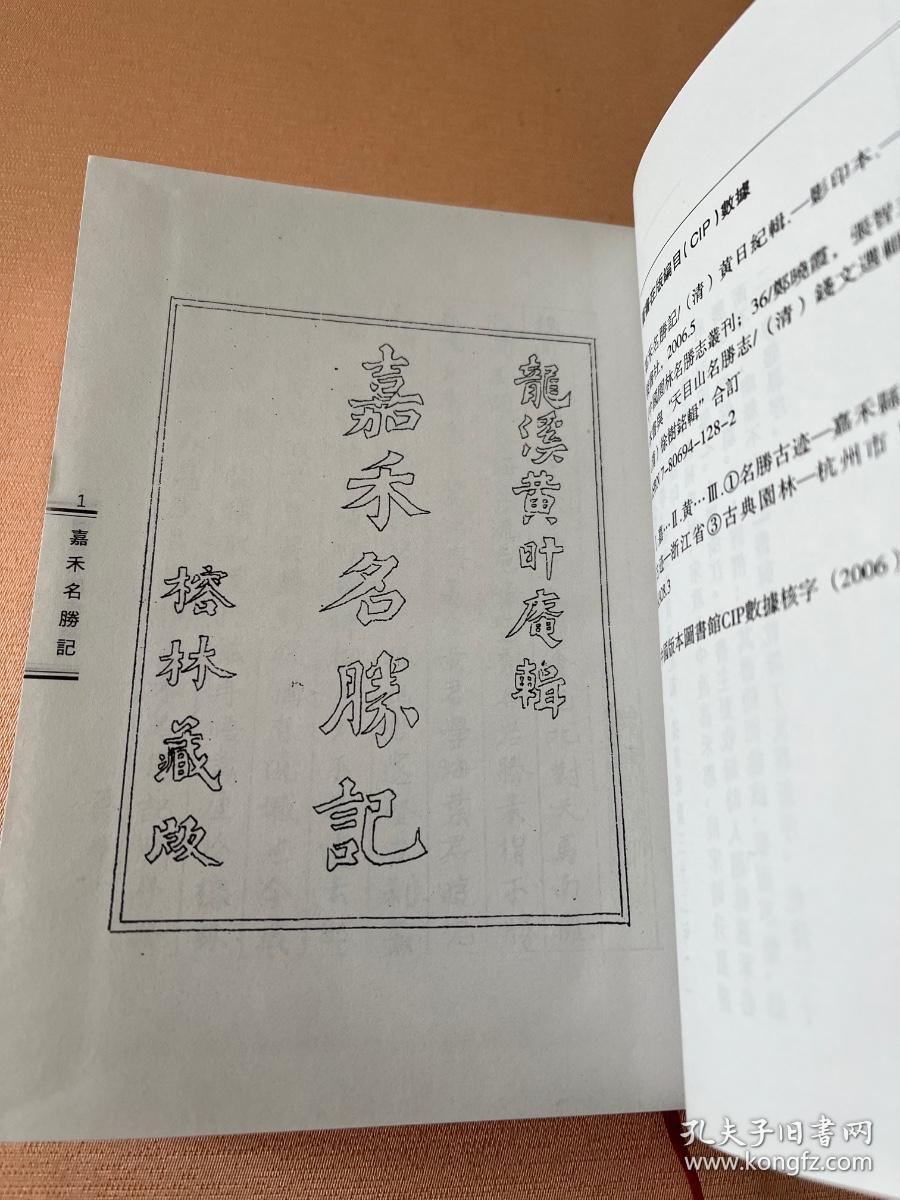 龍溪黃旪庵輯
嘉禾名勝記
榕林藏版
1
嘉禾名勝記
在版編目(CIP)數據
禾名勝記/(清)黃日紀輯.—影印本.—
社,2006.5
園林名勝志叢刊;36/鄭曉霞,張智
與“天目山名勝志/(清)錢文選輯
徐樹銘輯”合訂
7-80694-128-2
…Ⅱ.黃…Ⅲ.①名勝古迹—嘉禾縣
迹—浙江省③古典園林—杭州市
版本圖書館CIP數據核字(2006)
孔夫子旧书网
www.kongfz.com